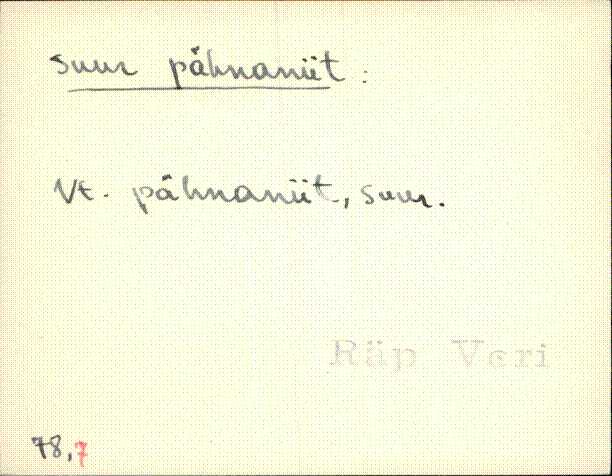 suur pähnaniit:
Vt. pähnaniit, suur.
Räp Veri
78,7